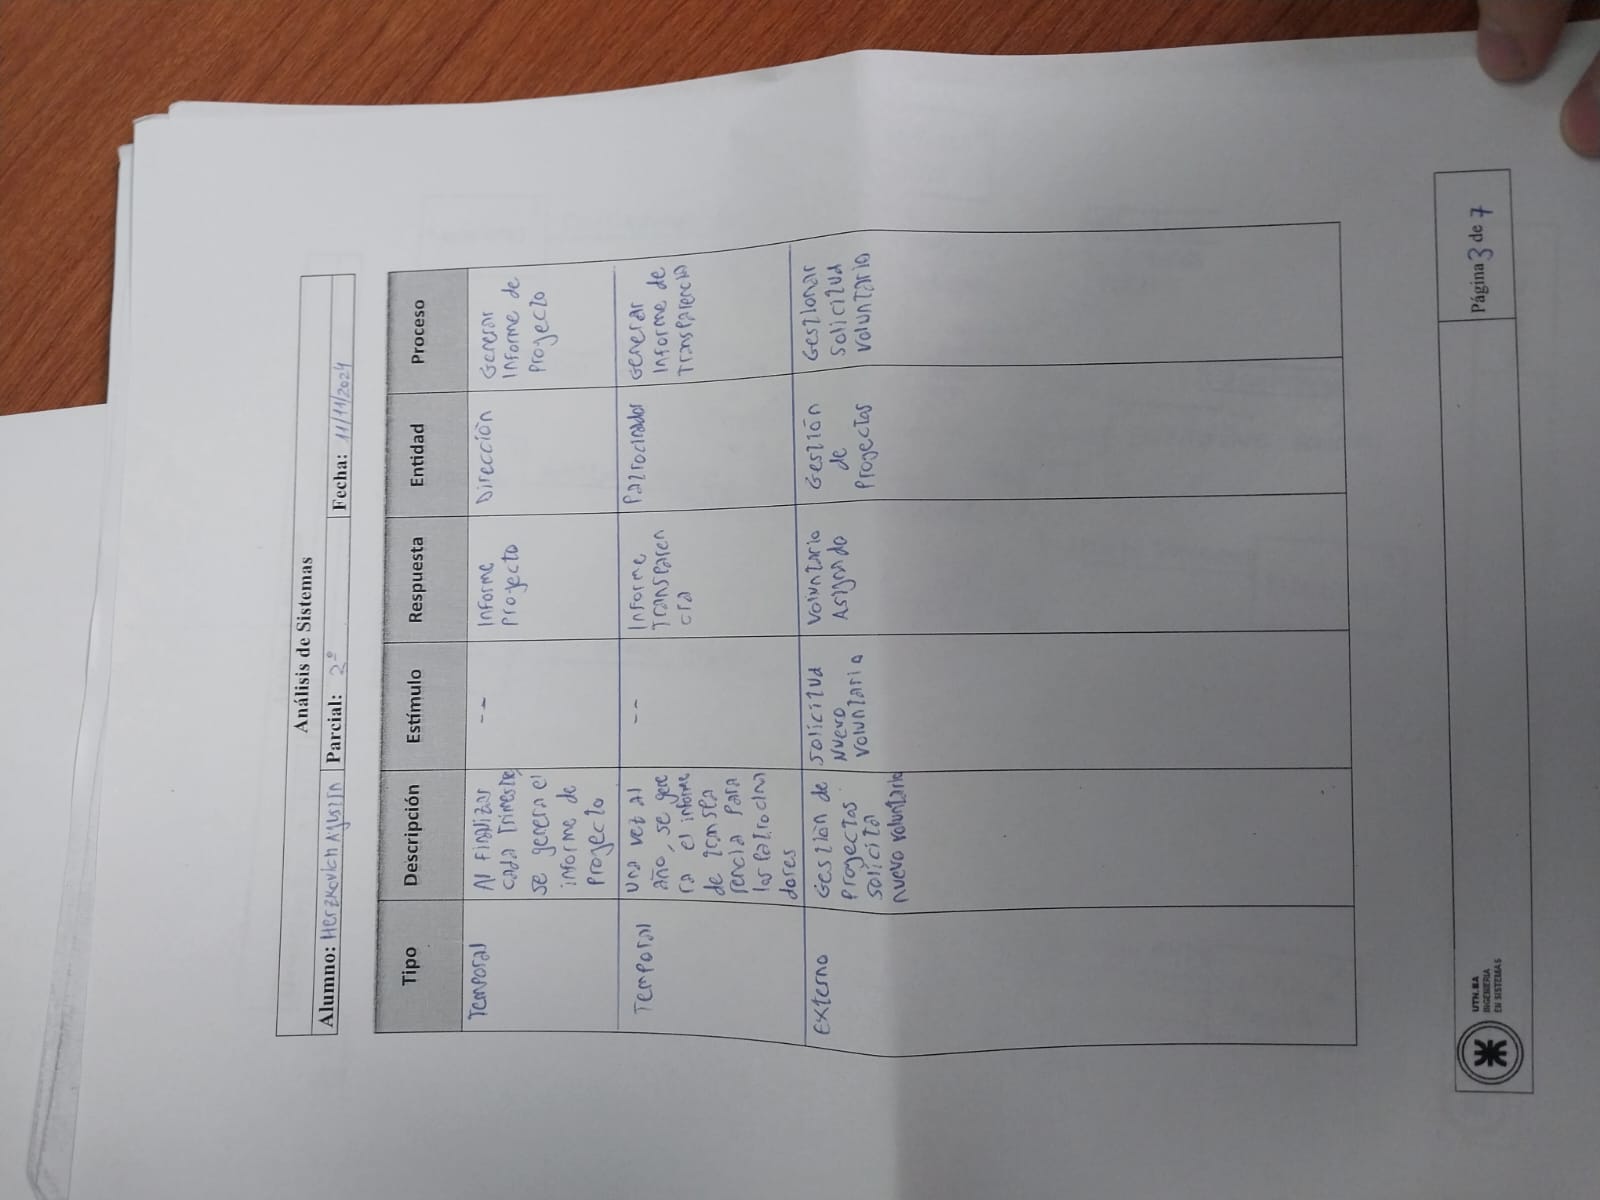 Análisis de Sistemas
Alumno: Herzkovich Agustin Parcial: 2º Fecha: 11/11/2024
Tipo Descripción Estímulo Respuesta Entidad Proceso
Temporal
Al finalizar
cada Trimestre,
se genera el
informe de
Proyecto
--
Informe
Proyecto
Dirección
Generar
Informe de
Proyecto
Temporal
Una vez al
año, se gene
ra el informe
de transpa
rencia para
los Patrocina
dores
--
Informe
Transparen
cia
Patrocinador
Generar
Informe de
Transparencia
Externo
Gestión de
Proyectos
solicita
nuevo voluntario
Solicitud
Nuevo
Voluntario
Voluntario
Asignado
Gestión
de
Proyectos
Gestionar
Solicitud
Voluntario
UTN.BA
INGENIERIA
EN SISTEMAS
Página 3 de 7